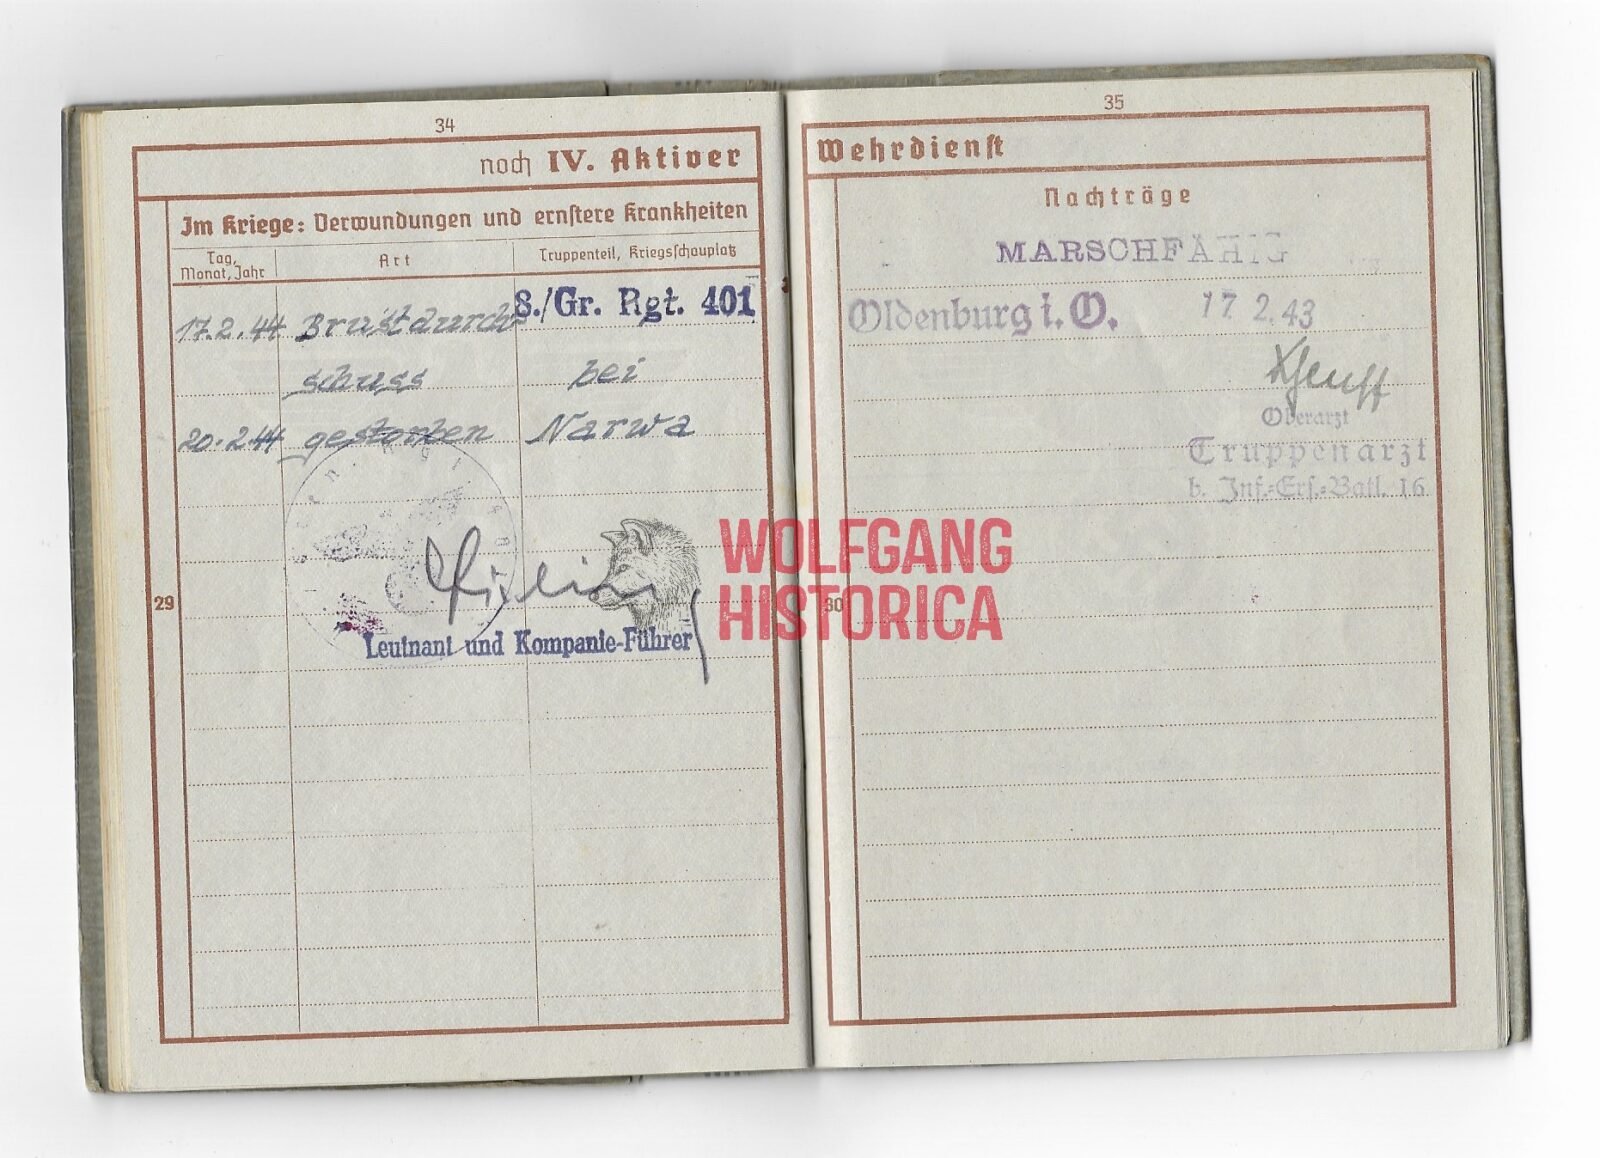 34
noch IV. Aktiver
Im Kriege: Verwundungen und ernstere Krankheiten
Tag, Monat, Jahr
Art
Truppenteil, Kriegsschauplatz
8./Gr. Rgt. 401
17.2.44 Brustdurch
schuss bei
20.2.44 gestorben Narwa
Leutnant und Kompanie-Führer
29
35
Wehrdienst
Nachträge
MARSCHFÄHIG
Oldenburg i. O. 17 2.43
Oberarzt
Truppenarzt
b. Inf.-Ers.-Batl. 16
30
WOLFGANG
HISTORICA